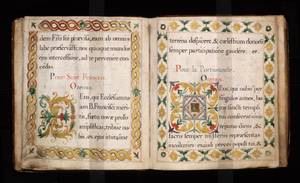 dem Filii sui prævisa, eam ab omni la
labe præservasti; nos quoque mundos
ejus intercessione, ad te pervenire con-
cedas.
Pour Saint François
Oremus.
Deus, qui Ecclesiam tu-
am B. Francisci meri-
tis, fœtu novæ prolis
amplificas; tribue no-
bis, ex ejus imitatione
terrena despicere, & cœlestium donorum
semper participatione gaudere.
Pour la Portioncule
Oremus.
Deus, qui nobis per
singulos annos, hu-
jus sancti templi
tui consecrationis
reparas diem, &
sacris semper mysteriis repræsentas
incolumes; exaudi preces populi tui, &